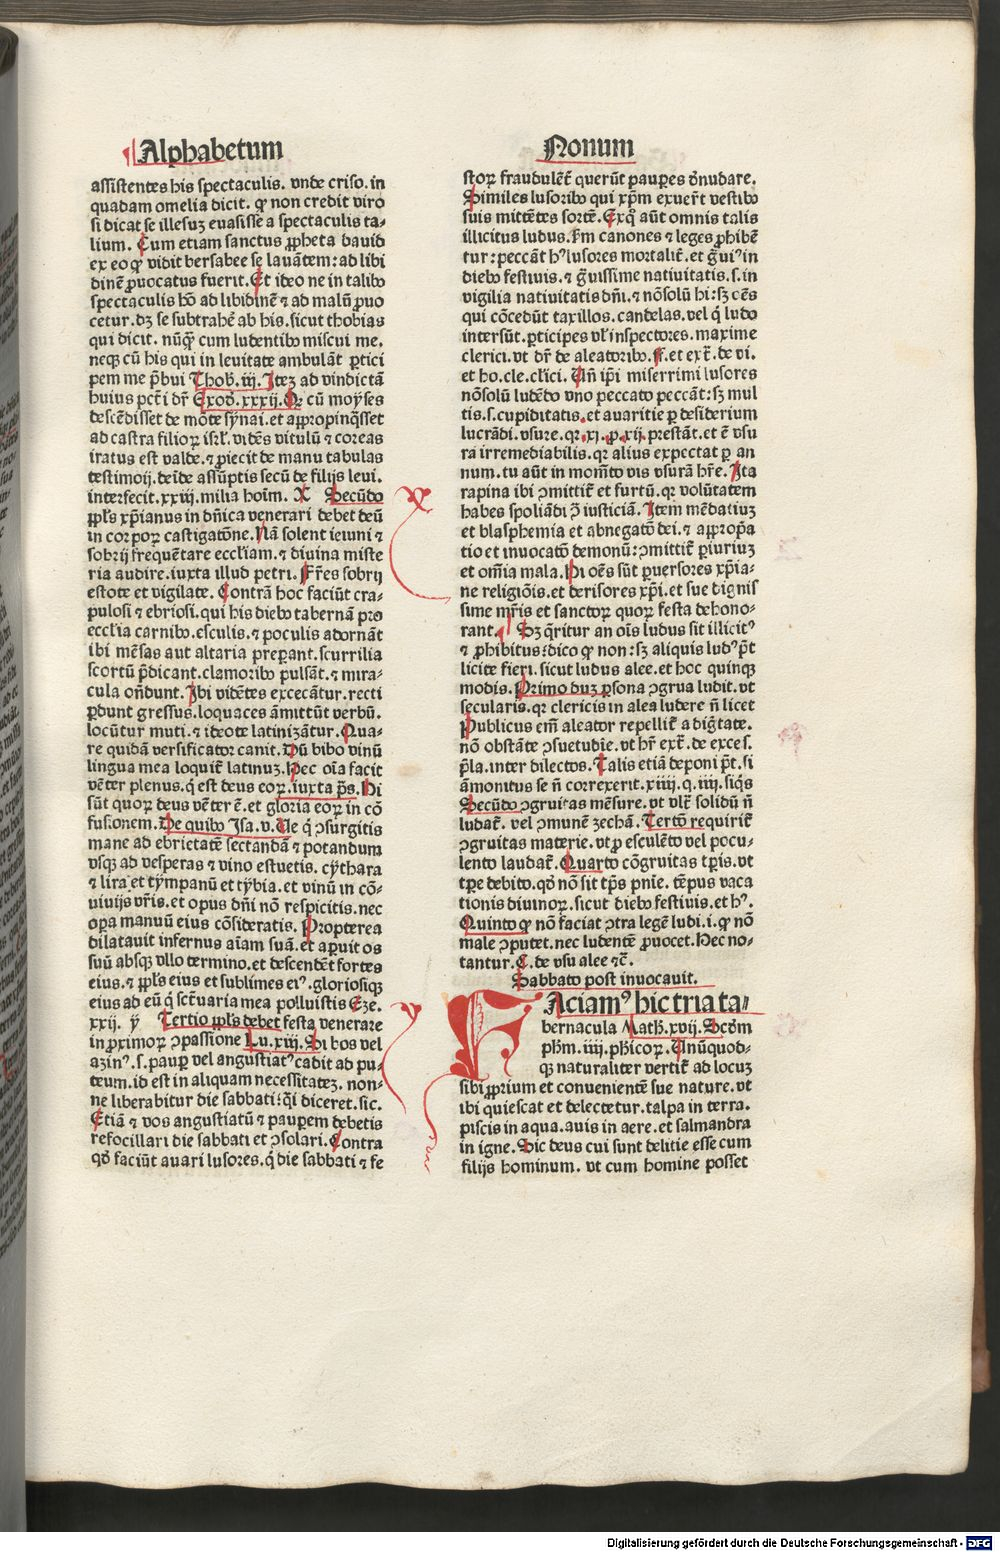 Alphabetum
assistentes his spectaculis. vnde criso. in
quadam omelia dicit. ꝙ non credit viro
si dicat se illesuꝫ euasisse a spectaculis ta⸗
lium. Cum etiam sanctus ꝓpheta dauid
ex eo ꝙ vidit bersabee se lauãtem: ad libi
dinẽ ꝓuocatus fuerit. Et ideo ne in talibꝰ
spectaculis hõ ad libidinẽ ⁊ ad malũ ꝓuo
cetur. dꝫ se subtrahẽ ab his. sicut thobias
qui dicit. nũꝗ̃ cum ludentibꝰ miscui me.
neqꝫ cũ his qui in leuitate ambulãt ꝑtici
pem me p̃bui Thob. iij. Iteꝫ ad vindictã
huius pctĩ dr̃ Exod. xxxij. Qꝛ cũ moyses
descẽdisset de mõte synai. et appropinq̃sset
ad castra filioꝝ isrl̃. vidẽs vitulũ ⁊ coreas
iratus est valde. ⁊ ꝓiecit de manu tabulas
testimoij. deĩde assũptis secũ de filijs leui.
interfecit. xxiij. milia hoĩm. X Secũdo
ppl̃s xp̃ianus in dñica venerari debet deũ
in corpoꝝ castigatõne. Nã solent ieiuni ⁊
sobrij frequẽtare eccl̃iam. ⁊ diuina miste
ria audire. iuxta illud petri. Fr̃es sobrij
estote et vigilate. Contrã hoc faciũt cra⸗
pulosi ⁊ ebriosi. qui his diebꝰ tabernã pro
eccl̃ia carnibꝰ. esculis. ⁊ poculis adornãt
ibi mẽsas aut altaria preꝑant. scurrilia
scortũ p̃dicant. clamoribꝰ pulsãt. ⁊ mira⸗
cula oñdunt. Ibi vidẽtes excecãtur. recti
ꝑdunt gressus. loquaces ãmittũt verbũ.
locũtur muti. ⁊ ideote latinizãtur. Qua⸗
re quidã versificator canit. Dũ bibo vinũ
lingua mea loquit̃ latinuꝫ. Hec oĩa facit
vẽter plenus. q̃ est deus eoꝝ. iuxta p̃s. Hi
sũt quoꝝ deus vẽter ẽ. et gloria eoꝝ in cõ
fusionem. De quibꝰ Isa. v. Ve q̃ ↄsurgitis
mane ad ebrietatẽ sectandã ⁊ potandum
vsqꝫ ad vesperas ⁊ vino estuetis. cythara
⁊ lira et tympanũ et tybia. et vinũ in cõ⸗
uiuijs vr̃is. et opus dñi nõ respicitis. nec
oꝑa manuũ eius cõsideratis. Propterea
dilatauit infernus aĩam suã. et aꝑuit os
suũ absqꝫ vllo termino. et descendẽt fortes
eius. ⁊ ppl̃s eius et sublimes eiꝰ. gloriosiqꝫ
eius ad eũ q̃ sct̃uaria mea polluistis Eze.
xxij. ꝟ Tertio ppl̃s debet festa venerare
in ꝓximoꝝ ↄpassione Lu. xiij. Si bos vel
azinꝰ. s. pauꝑ vel angustiatꝰ cadit ad pu⸗
teum. id est in aliquam necessitateꝫ. non⸗
ne liberabitur die sabbati: q̃i diceret. sic.
Etiã ⁊ vos angustiatũ ⁊ pauꝑem debetis
refocillari die sabbati et ↄsolari. Contra
qd̃ faciũt auari lusores. q̃ die sabbati ⁊ fe
Nonum
stoꝝ fraudulẽt̃ querũt pauꝑes d̃nudare.
Similes lusoribꝰ qui xp̃m exuer̃t vestibꝰ
suis mittẽtes sortẽ. Exq̃ aũt omnis talis
illicitus ludus. ẜm canones ⁊ leges ꝓhibẽ
tur: peccãt hꝰ lusores mortalit̃. et g̃uiꝰ in
diebꝰ festiuis. ⁊ g̃uissime natiuitatis. s. in
vigilia natiuitatis dñi. ⁊ nõsolũ hi: sꝫ oẽs
qui cõcedũt taxillos. candelas. vel q̃ ludo
intersũt. ꝑticipes vl̃ inspectores. maxime
clerici. vt dr̃ de aleatoribꝰ. ff. et ext̃. de vi.
et ho. cle. cl̃ici. Vñ ip̃i miserrimi lusores
nõsolũ ludẽdo vno peccato peccãt: sꝫ mul
tis. s. cupiditatis. et auaritie ꝑ desiderium
lucrãdi. vsure. qꝛ. xj. ꝓ. xij. prestãt. et ẽ vsu
ra irremediabilis. qꝛ alius expectat ꝑ an
num. tu aũt in momẽto vis vsurã hr̃e. Ita
rapina ibi ↄmittit̃ et furtũ. qꝛ volũtatem
habes spoliãdi ꝯ̃ iusticiã. Item mẽdatiuꝫ
et blasphemia et abnegatõ dei. ⁊ aꝓpa
tio et inuocatõ demonũ: ↄmittit̃ ꝑiuriuꝫ
et om̃ia mala. Hi oẽs sũt ꝑuersores xp̃ia⸗
ne religiõis. et derisores xp̃i. et sue dignis
sime mr̃is et sanctoꝝ quoꝝ festa dehono⸗
rant. Sꝫ q̃ritur an oĩs ludus sit illicitꝰ
⁊ ꝓhibitus: dico ꝙ non: sꝫ aliquis ludꝰ p̃t
licite fieri. sicut ludus alee. et hoc quinqꝫ
modis. Primo duꝫ ꝑsona ↄgrua ludit. vt
secularis. qꝛ clericis in alea ludere ñ licet
Publicus em̃ aleator repellit̃ a dig̃tate.
nõ obstãte ↄsuetudie. vt hr̃ ext̃. de exces.
p̃la. inter dilectos. Talis etiã deponi p̃t. si
ãmonitus se ñ correxerit. xiiij. q. iiij. siq̃s
Secũdo ↄgruitas mẽsure. vt vlt̃ solidũ ñ
ludat̃. vel ↄmunẽ zechã. Tertõ requirit̃
ↄgruitas materie. vt ꝓ esculẽto vel pocu⸗
lento laudat̃. Quarto cõgruitas tꝑis. vt
tꝑe debito. qd̃ nõ sit tp̃s pnĩe. tẽpus vaca
tionis diuinoꝝ. sicut diebꝰ festiuis. et hꝰ.
Quinto ꝙ nõ faciat ↄtra legẽ ludi. i. ꝙ nõ
male ↄputet. nec ludentẽ ꝓuocet. Hec no⸗
tantur. C. de vsu alee ⁊c̃.
Sabbato post inuocauit.
FAciamꝰ hic tria ta⸗
bernacula Math. xvij. Scd̃m
ph̃m. iiij. ph̃icoꝝ. Vnũquod⸗
qꝫ naturaliter vertit̃ ad locuꝫ
sibi ꝓprium et conuenientẽ sue nature. vt
ibi quiescat et delectetur. talpa in terra.
piscis in aqua. auis in aere. et salmandra
in igne. Sic deus cui sunt delitie esse cum
filijs hominum. vt cum homine posset
Digitalisierung gefördert durch die Deutsche Forschungsgemeinschaft - DFG